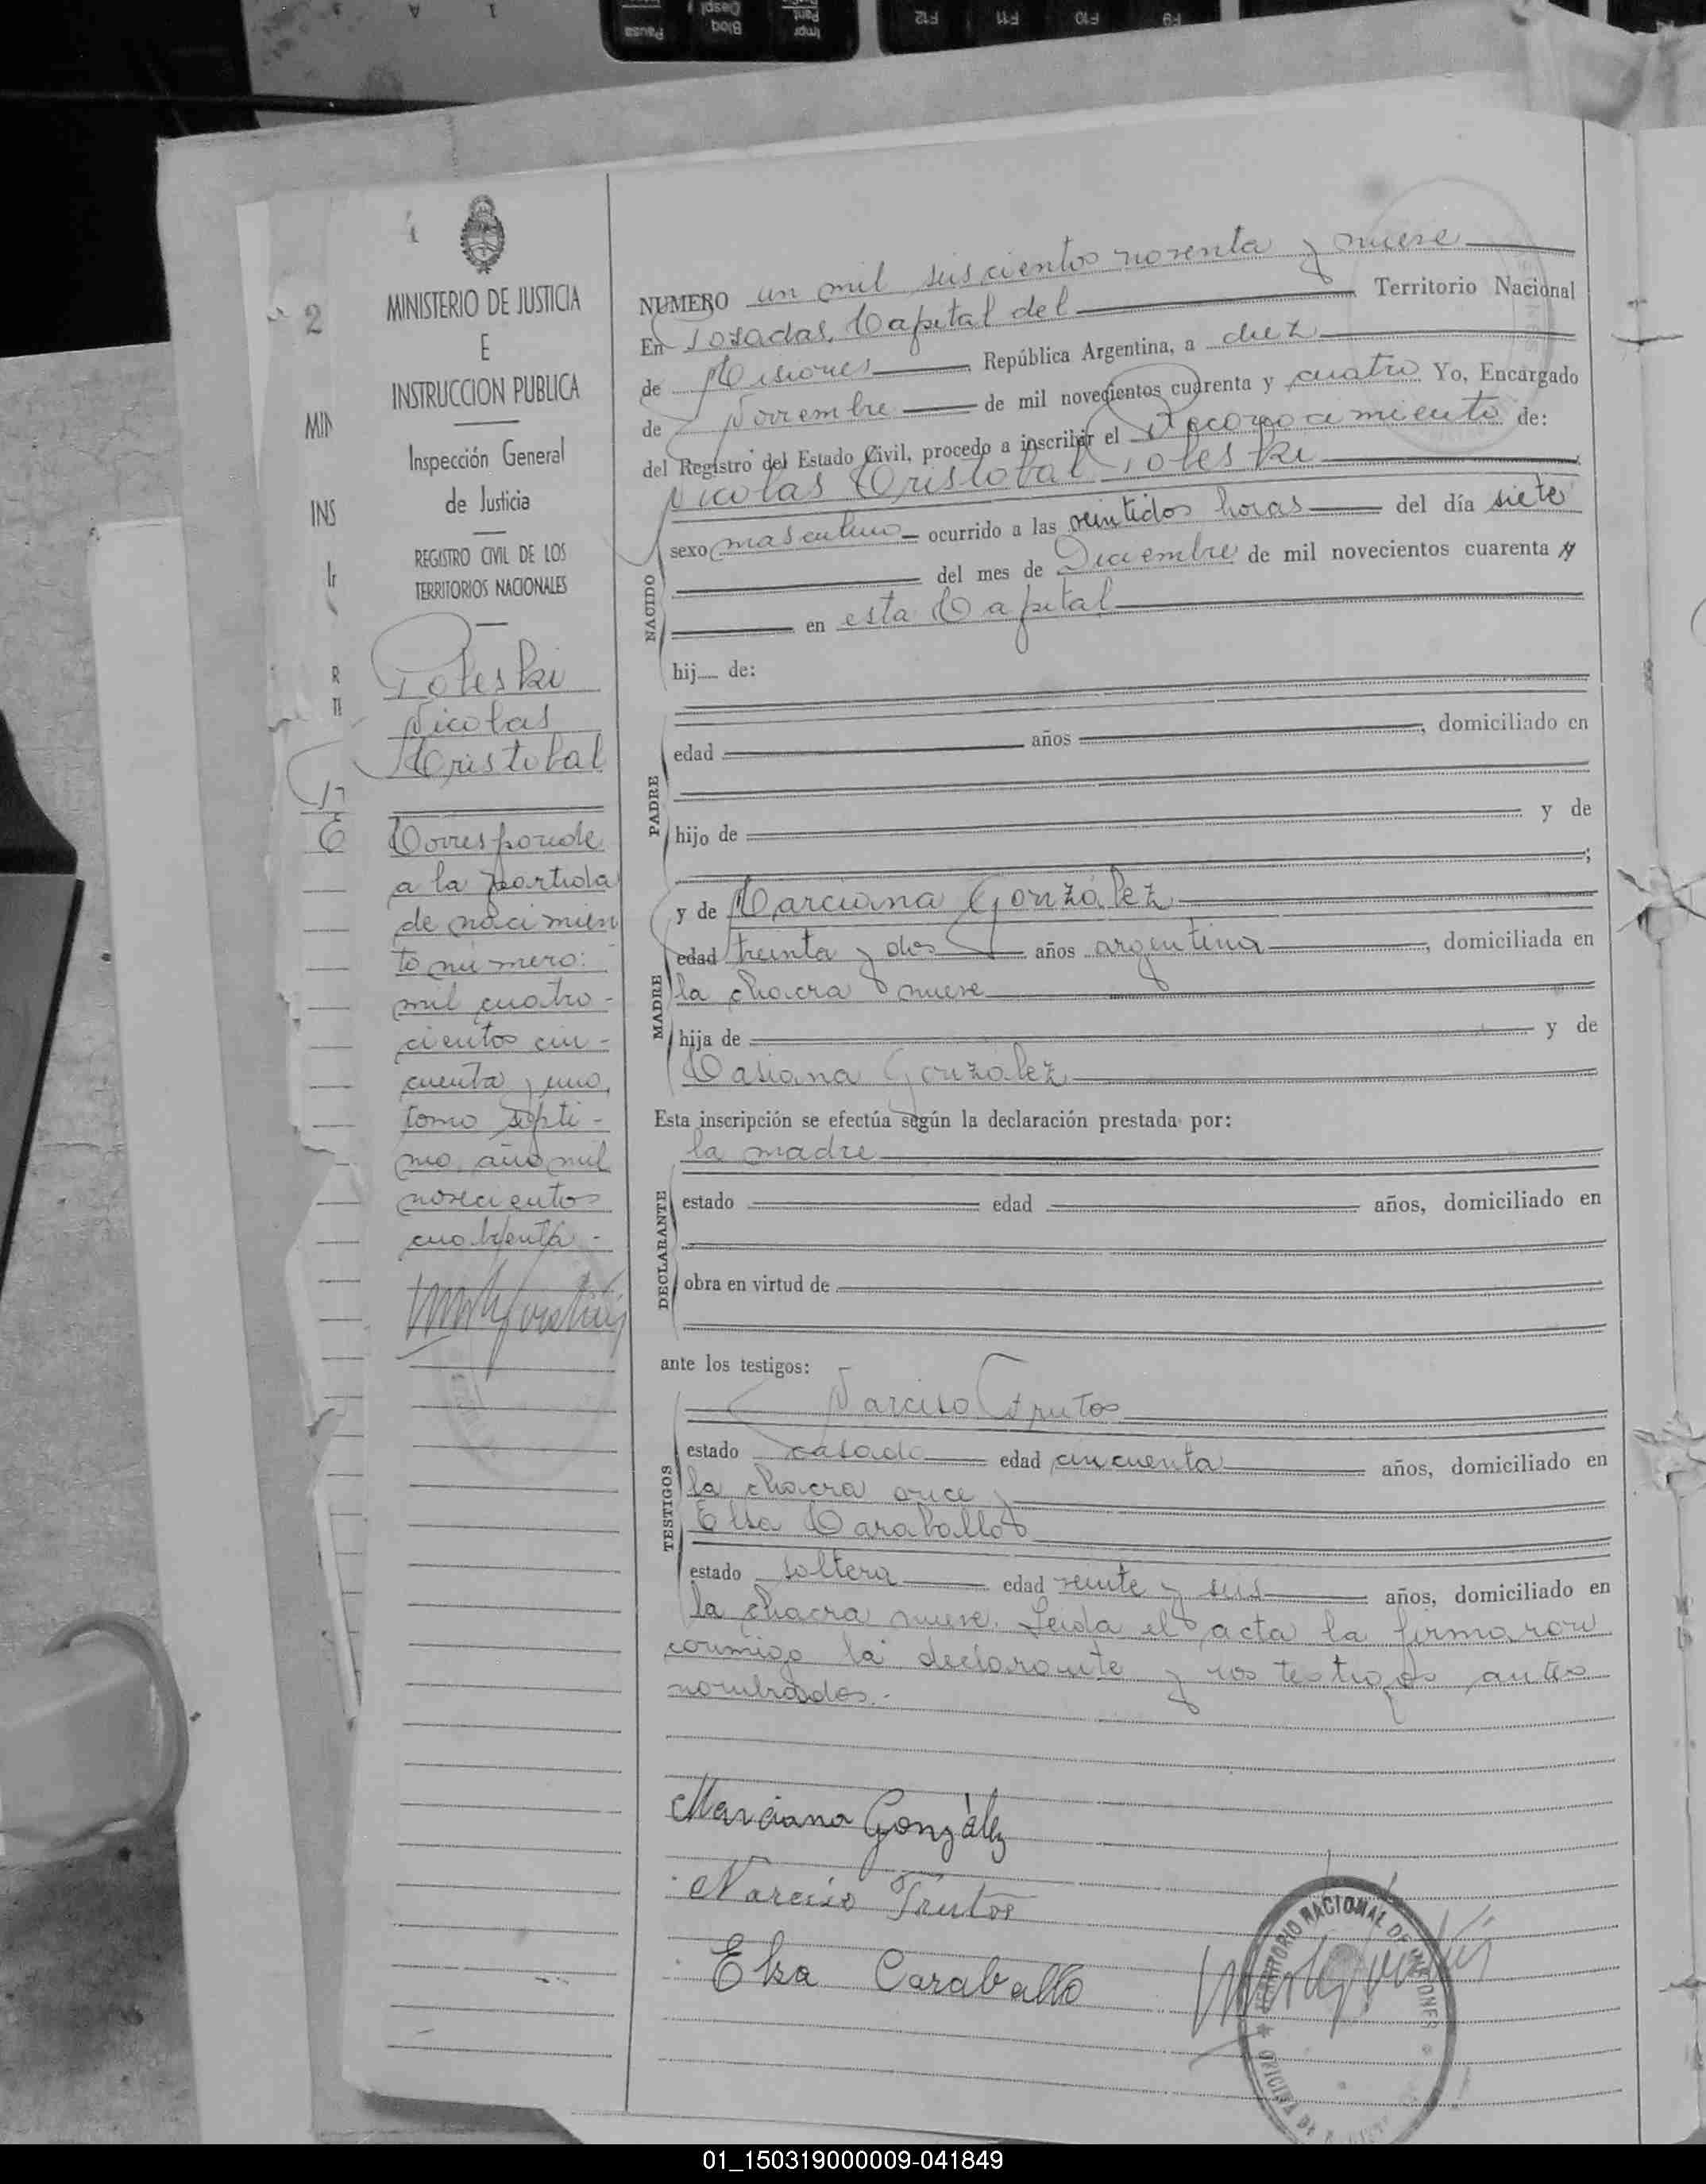 MINISTERIO DE JUSTICIA
E
INSTRUCCION PUBLICA
Inspección General
de Justicia
REGISTRO CIVIL DE LOS
TERRITORIOS NACIONALES
Poleski
Nicolas
Cristobal
Corresponde
a la partida
de nacimien
to número:
mil cuatro-
cientos cin-
cuenta y uno,
tomo septi-
mo, año mil
novecientos
cuarenta.-
NUMERO un mil seiscientos noventa y nueve
En Posadas, Capital del Territorio Nacional
de Misiones República Argentina, a diez
de Noviembre de mil novecientos cuarenta y cuatro Yo, Encargado
del Registro del Estado Civil, procedo a inscribir el Reconocimiento de:
Nicolas Cristobal Poleski
NACIDO
sexo masculino ocurrido a las veintidos horas del día siete
del mes de Diciembre de mil novecientos cuarenta y
en esta Capital
hij de:
PADRE
edad años , domiciliado en
hijo de y de
;
MADRE
y de Marciana González
edad treinta y dos años argentina , domiciliada en
la chacra nueve
hija de y de
Casiana González
Esta inscripción se efectúa según la declaración prestada por:
la madre
DECLARANTE
estado edad años, domiciliado en
obra en virtud de
ante los testigos:
TESTIGOS
Narciso Frutos
estado casado edad cincuenta años, domiciliado en
la chacra once y
Elsa Caraballo
estado soltera edad veinte y seis años, domiciliado en
la chacra nueve. Leida el acta la firmaron
conmigo la declarante y los testigos antes
nombrados.-
Marciana González
Narciso Frutos
Elsa Caraballo
TERRITORIO NACIONAL DE MISIONES
01_150319000009-041849